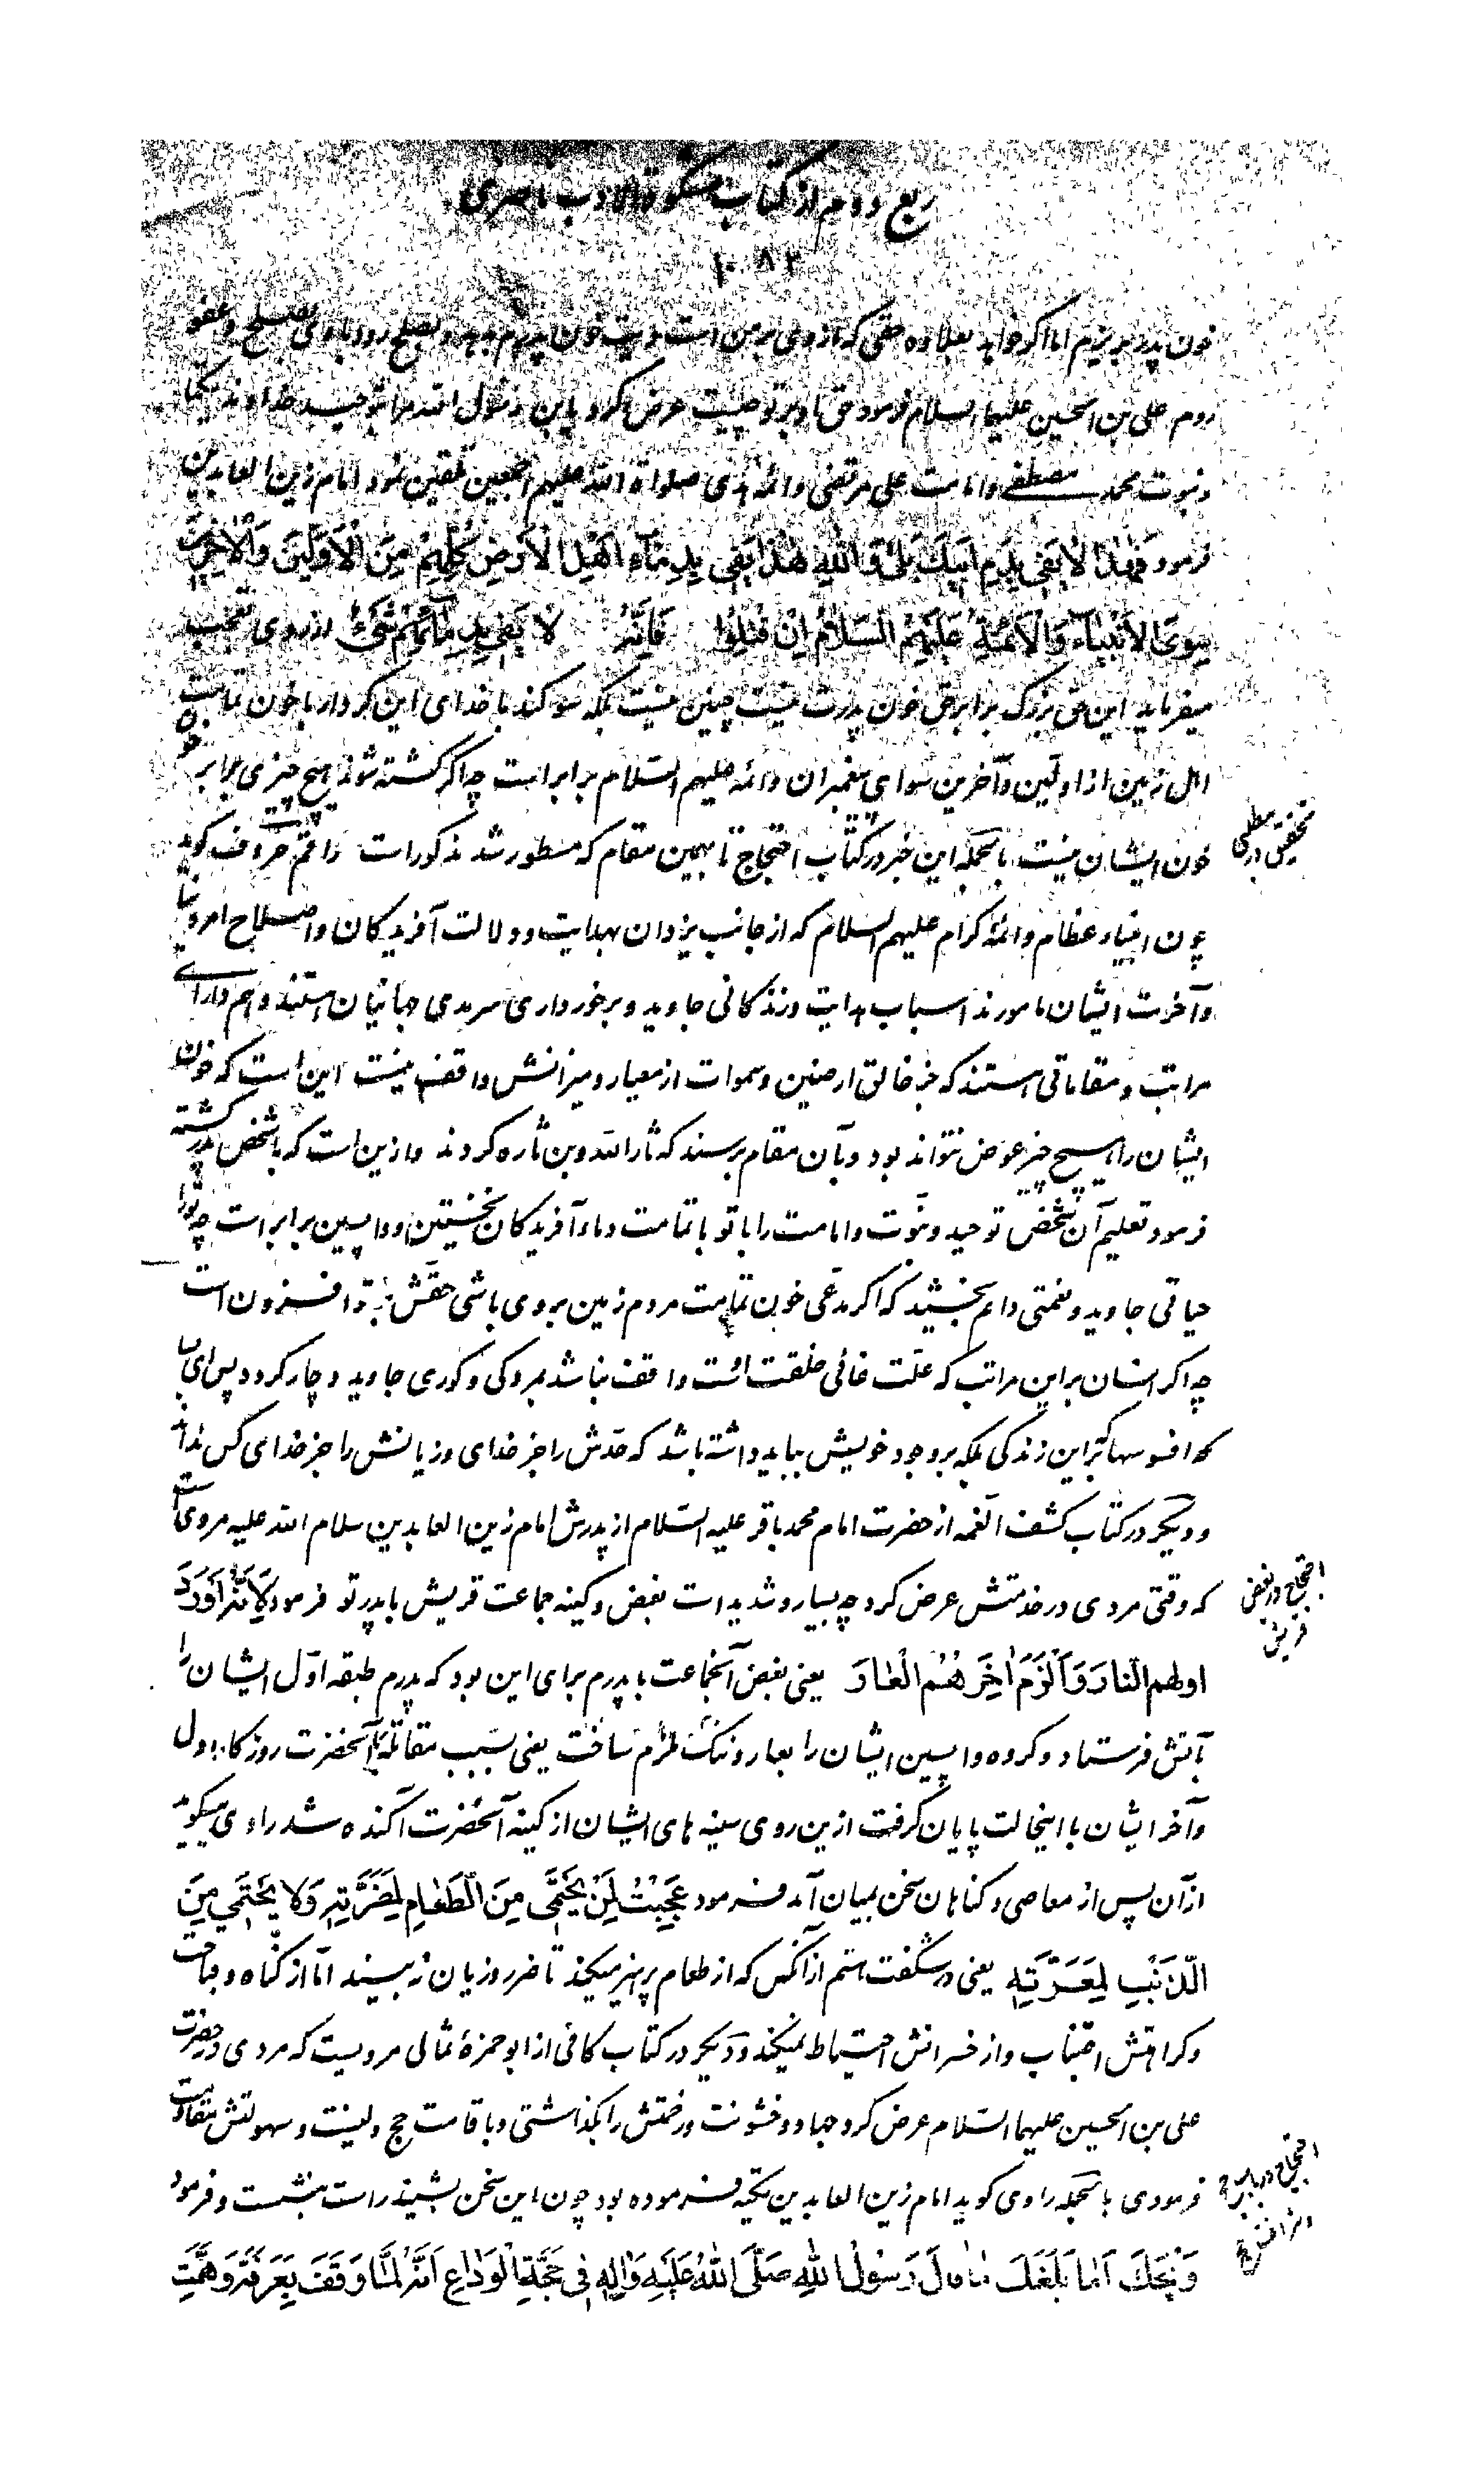 ربع دوم از کتاب مشکوة الادب ناصری
۱۰۸۲
خون پدر بریزم اما اگر خواهد بعلاوه حقی که از وی بر من است دیت خون پدرم بدهد و بصلح رود با وی بصلح و عفو
روم علی بن الحسین علیهما السلام فرمود حق او بر تو چیست عرض کرد یا بن رسول الله مرا بتوحید خداوند یکتا
و نبوت محمد مصطفی و امامت علی مرتضی و ائمه هدی صلواة الله علیهم اجمعین تلقین نمود امام زین العابدین
فرمود فَهٰذا لا یَفی بِدَمِ اَبیکَ بَلیٰ وَ اللهِ هٰذا یَفی بِدِمآءِ اَهْلِ الاَرْضِ کُلِّهِمْ مِنَ الْاَوَّلینَ وَالْاٰخِرینَ
سِوَی الاَنْبِیآءِ وَالْاَئِمَّةِ عَلَیْهِمُ السَّلامُ اِنْ قُتِلُوا فَاِنَّهُ لا یَفی بِدِمآئِهِمْ شَیْءٌ از روی تعجب
میفرماید این حق بزرک برابر حق خون پدرت نیست چنین نیست بلکه سوکند با خدای این کردار با خون تمامت
اهل زمین از اولین و آخرین سوای پیغمبران و ائمه علیهم السلام برابر است چه اگر کشته شوند هیچ چیزی برابر خون
خون ایشان نیست بالجمله این خبر در کتاب احتجاج تا بهمین مقام که مسطور شد مذکور است راقم حروف کوید
چون انبیاء عظام و ائمه کرام علیهم السلام که از جانب یزدان بهدایت و دلالت آفریدکان و اصلاح امر دنیا
و آخرت ایشان مامورند اسباب هدایت و زندکانی جاوید و برخورداری سرمدی جهانیان هستند و هم دارای
مراتب و مقاماتی هستند که جز خالق ارضین و سموات از معیار و میزانش واقف نیست این است که خون
ایشان را هیچ چیز عوض نتواند بود و بآن مقام برسند که ثار الله و بن ثاره کردند و ازین است که با شخص پدر کشته
فرمود تعلیم آن شخص توحید و نبوت و امامت را با تو با تمامت دماء آفریدکان نخستین و واپسین برابر است چه تورا
حیاتی جاوید و نعمتی دائم بخشید که اگر مدعی خون تمامت مردم زمین بر وی باشی حقش بر تو افزون است
چه اگر انسان بر این مراتب که علت غائی خلقت است واقف نباشد بمردکی و کوری جاوید دچار کردد پس ای بسا
که افسوسها که بر این زندکی بلکه بر وجود خویش بباید داشته باشد که حدش را جز خدای و زیانش را جز خدای کس نداند
و دیکر در کتاب کشف الغمه از حضرت امام محمد باقر علیه السلام از پدرش امام زین العابدین سلام الله علیه مروی است
که وقتی مردی در خدمتش عرض کرد چه بسیار و شدید است بغض و کینه جماعت قریش با پدر تو فرمود لِاَنَّهُ اَوْرَدَ
اولهم النّارَ وَ اَلْزَمَ اٰخِرَهُمُ الْعارَ یعنی بغض آنجماعت با پدرم برای این بود که پدرم طبقه اول ایشان را
بآتش فرستاد و کروه واپسین ایشان را بعار و ننک ملزم ساخت یعنی بسبب مقاتله با آنحضرت روزکار اول
و آخر ایشان با اینحالت پایان کرفت ازین روی سینه های ایشان از کینه آنحضرت آکنده شد راوی میکوید
از آن پس از معاصی و کناهان سخن بمیان آمد فرمود عَجِبْتُ لِمَنْ یَحْتَمی مِنَ الطَّعامِ لِمَضَرَّتِهِ وَلا یَحْتَمی مِنَ
الذَّنْبِ لِمَعَرَّتِهِ یعنی در شکفت هستم از آنکس که از طعام پرهیز میکند تا ضرر و زیان نه بیند اما از کناه و قباحت
و کراهتش اجتناب و از خسرانش احتیاط نمیکند و دیکر در کتاب کافی از ابو حمزه ثمالی مرویست که مردی در حضرت
علی بن الحسین علیهما السلام عرض کرد جهاد و خشونت و زحمتش را بگذاشتی و باقامت حج و لینت و سهولتش قناعت
فرمودی بالجمله راوی کوید امام زین العابدین تکیه فرموده بود چون این سخن بشنید راست بنشست و فرمود
وَیْحَکَ اَما بَلَغَکَ ما قالَ رَسُولُ اللهِ صَلَّی اللهُ عَلَیْهِ وَاٰلِهِ فی حَجَّةِ الْوَداعِ اَنَّهُ لَمّا وَقَفَ بِعَرَفَةَ وَهَمَّتِ
تحقیق در مطلب
احتجاج در بغض
قریش
احتجاج در باب حج